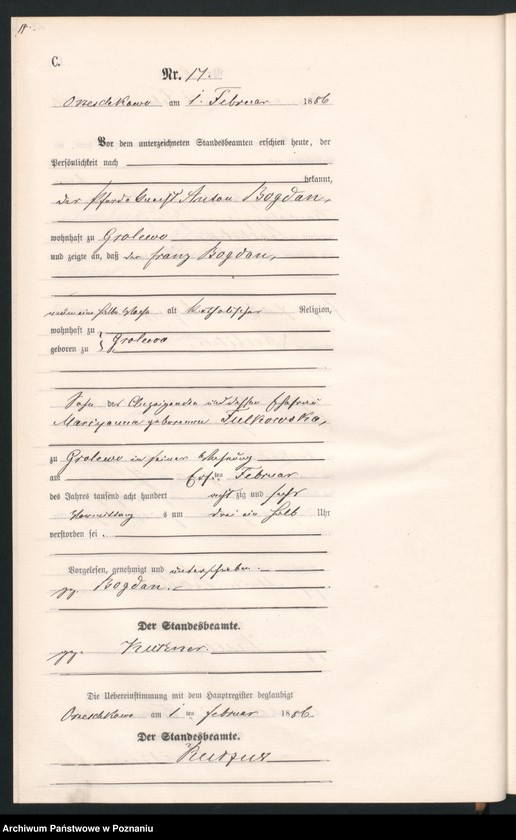 C.
Nr. 17.
am 1. Februar 1886
Vor dem unterzeichneten Standesbeamten erschien heute, der
Persönlichkeit nach
bekannt,
der Pferdeknecht Anton Bogdan,
wohnhaft zu Grolewo
und zeigte an, daß der Franz Bogdan,
eine halbe alt katholischer Religion,
wohnhaft zu
geboren zu } Grolewo
Sohn des Anzeigenden und dessen Ehefrau
Marijanna geborenen Fulkowska,
zu Grolewo in seiner Wohnung
am Ersten Februar
des Jahres tausend acht hundert achtzig und sechs
Vormittags um drei ein halb Uhr
verstorben sei.
Vorgelesen, genehmigt und unterschrieben.
gz. Bogdan.
Der Standesbeamte.
gz.
Die Uebereinstimmung mit dem Hauptregister beglaubigt
am 1 ten Februar 1886.
Der Standesbeamte.
Archiwum Państwowe w Poznaniu